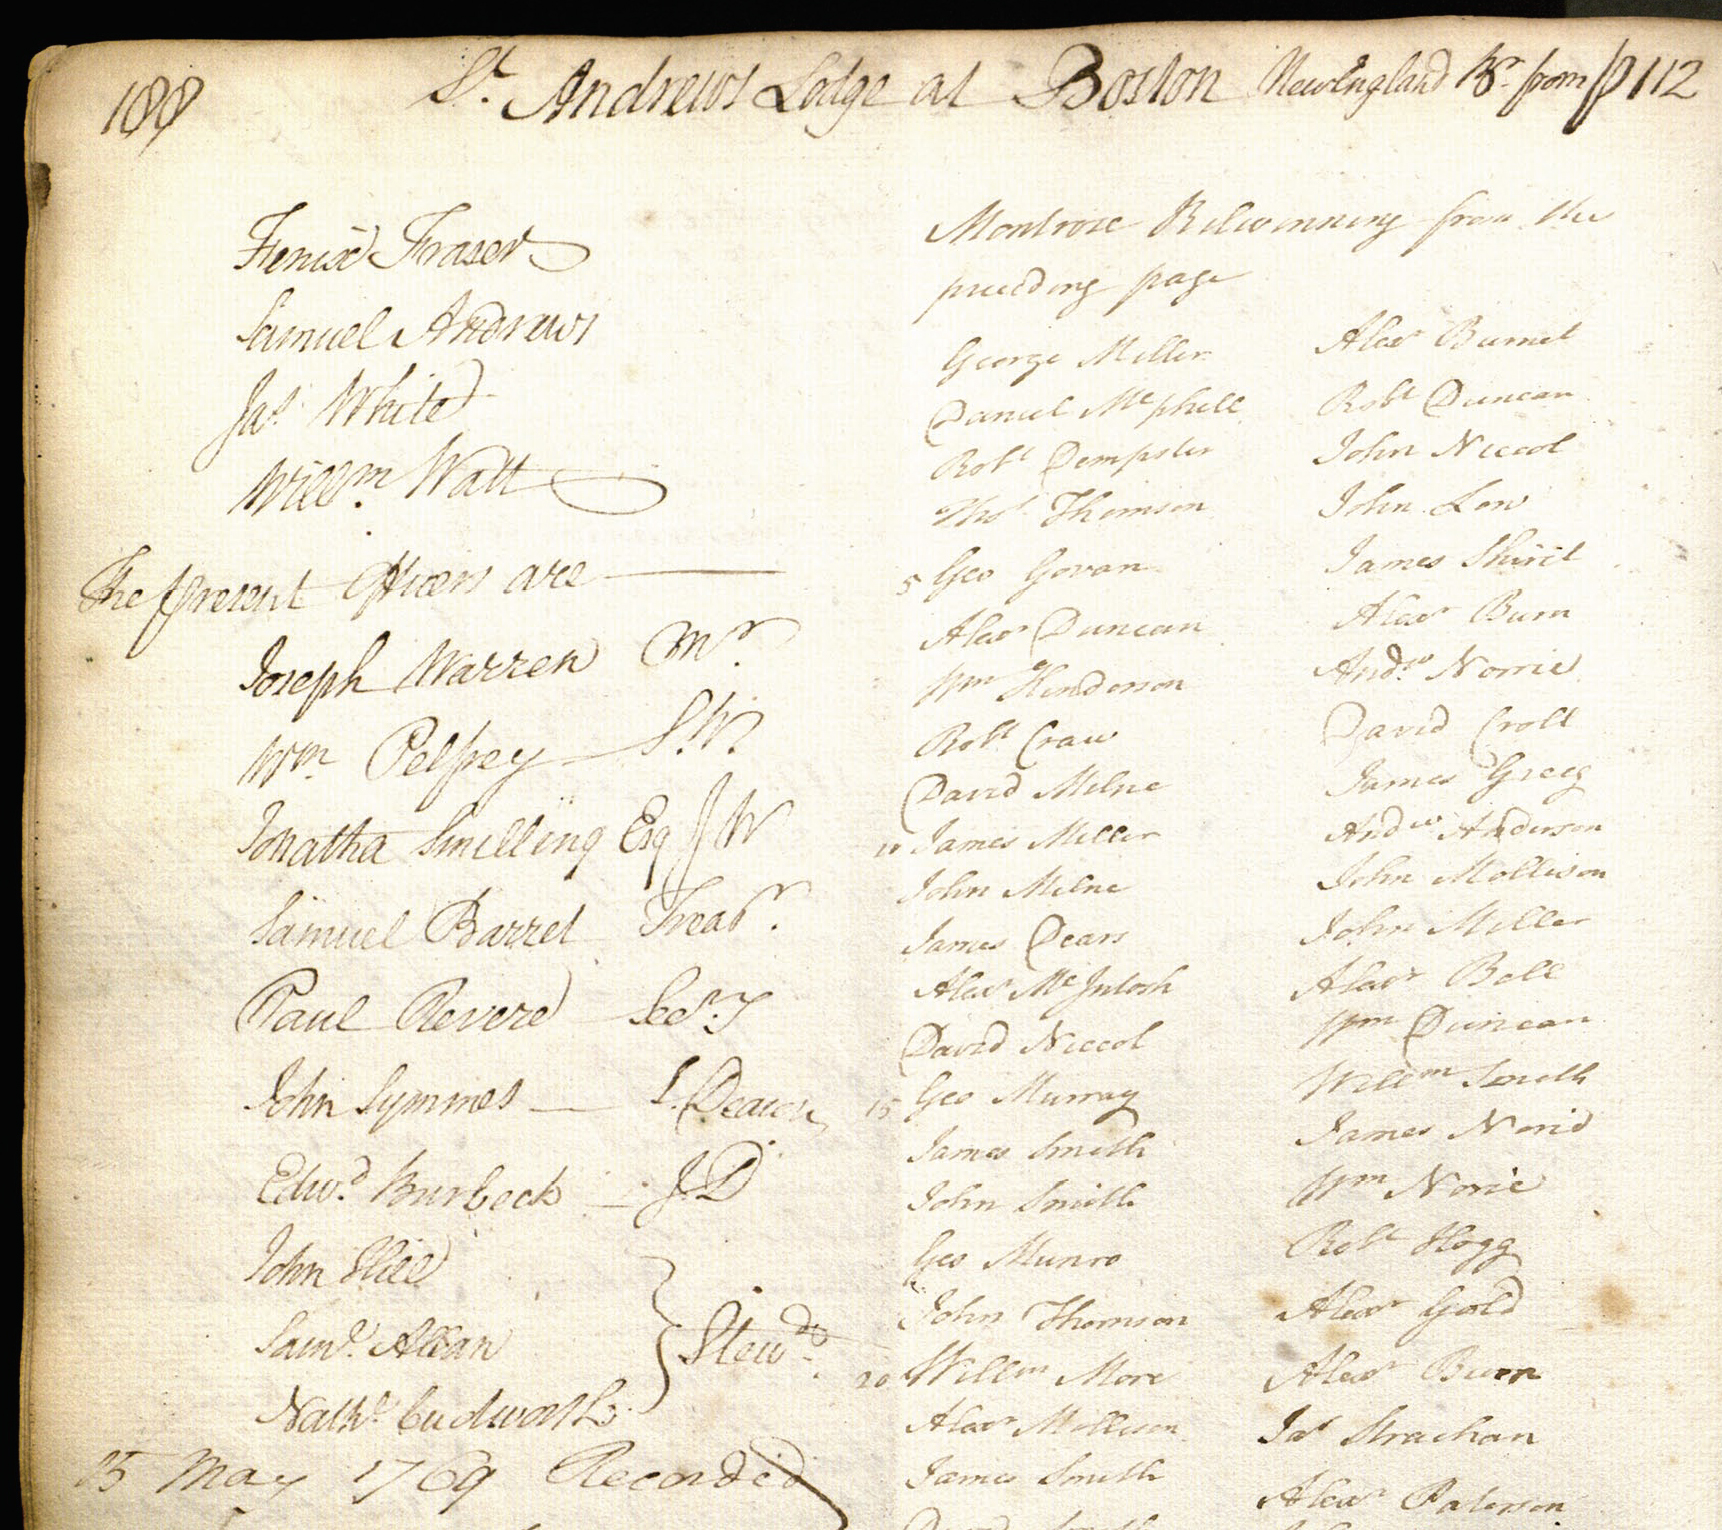 188
St. Andrews Lodge at Boston New England Br. from p 112
Fenix Fraser
Samuel Andrews
Jas. White
Willm. Watt
The present Officers are
Joseph Warren Mr.
Wm. Pelfrey S.W.
Jonatha Snelling Esq J W
Samuel Barret Treasr.
Paul Revere Secry
John Symmes S. Deacon
Edwd. Burbeck J. D
John Hill
Saml. Allan
Nathl. Cudworth
Stewds.
15 May 1769 Recorded
Montrose Kilwinning from the
preceeding page
George Miller
Daniel Mcphell
Robt Dempster
Thos Thomson
5 Geo Govan
Alexr Duncan
Wm Henderson
Robt Craw
David Milne
10 James Miller
John Milne
James Dears
Alexr McJntosh
David Niccol
15 Geo Murray
James Smith
John Smith
Geo Munro
John Thomson
20 Willm More
Alexr Mollison
James Smith
Alexr Burnet
Robt Duncan
John Niccol
John Low
James Shiret
Alexr Burn
Andw. Norrie
David Croll
James Greig
Andw Anderson
John Mollison
John Miller
Alexr Bell
Wm Duncan
Willm Smith
James Norie
Wm Norie
Robt Hogg
Alexr Gold
Alexr Burn
Jas Strachan
Alexr Paterson